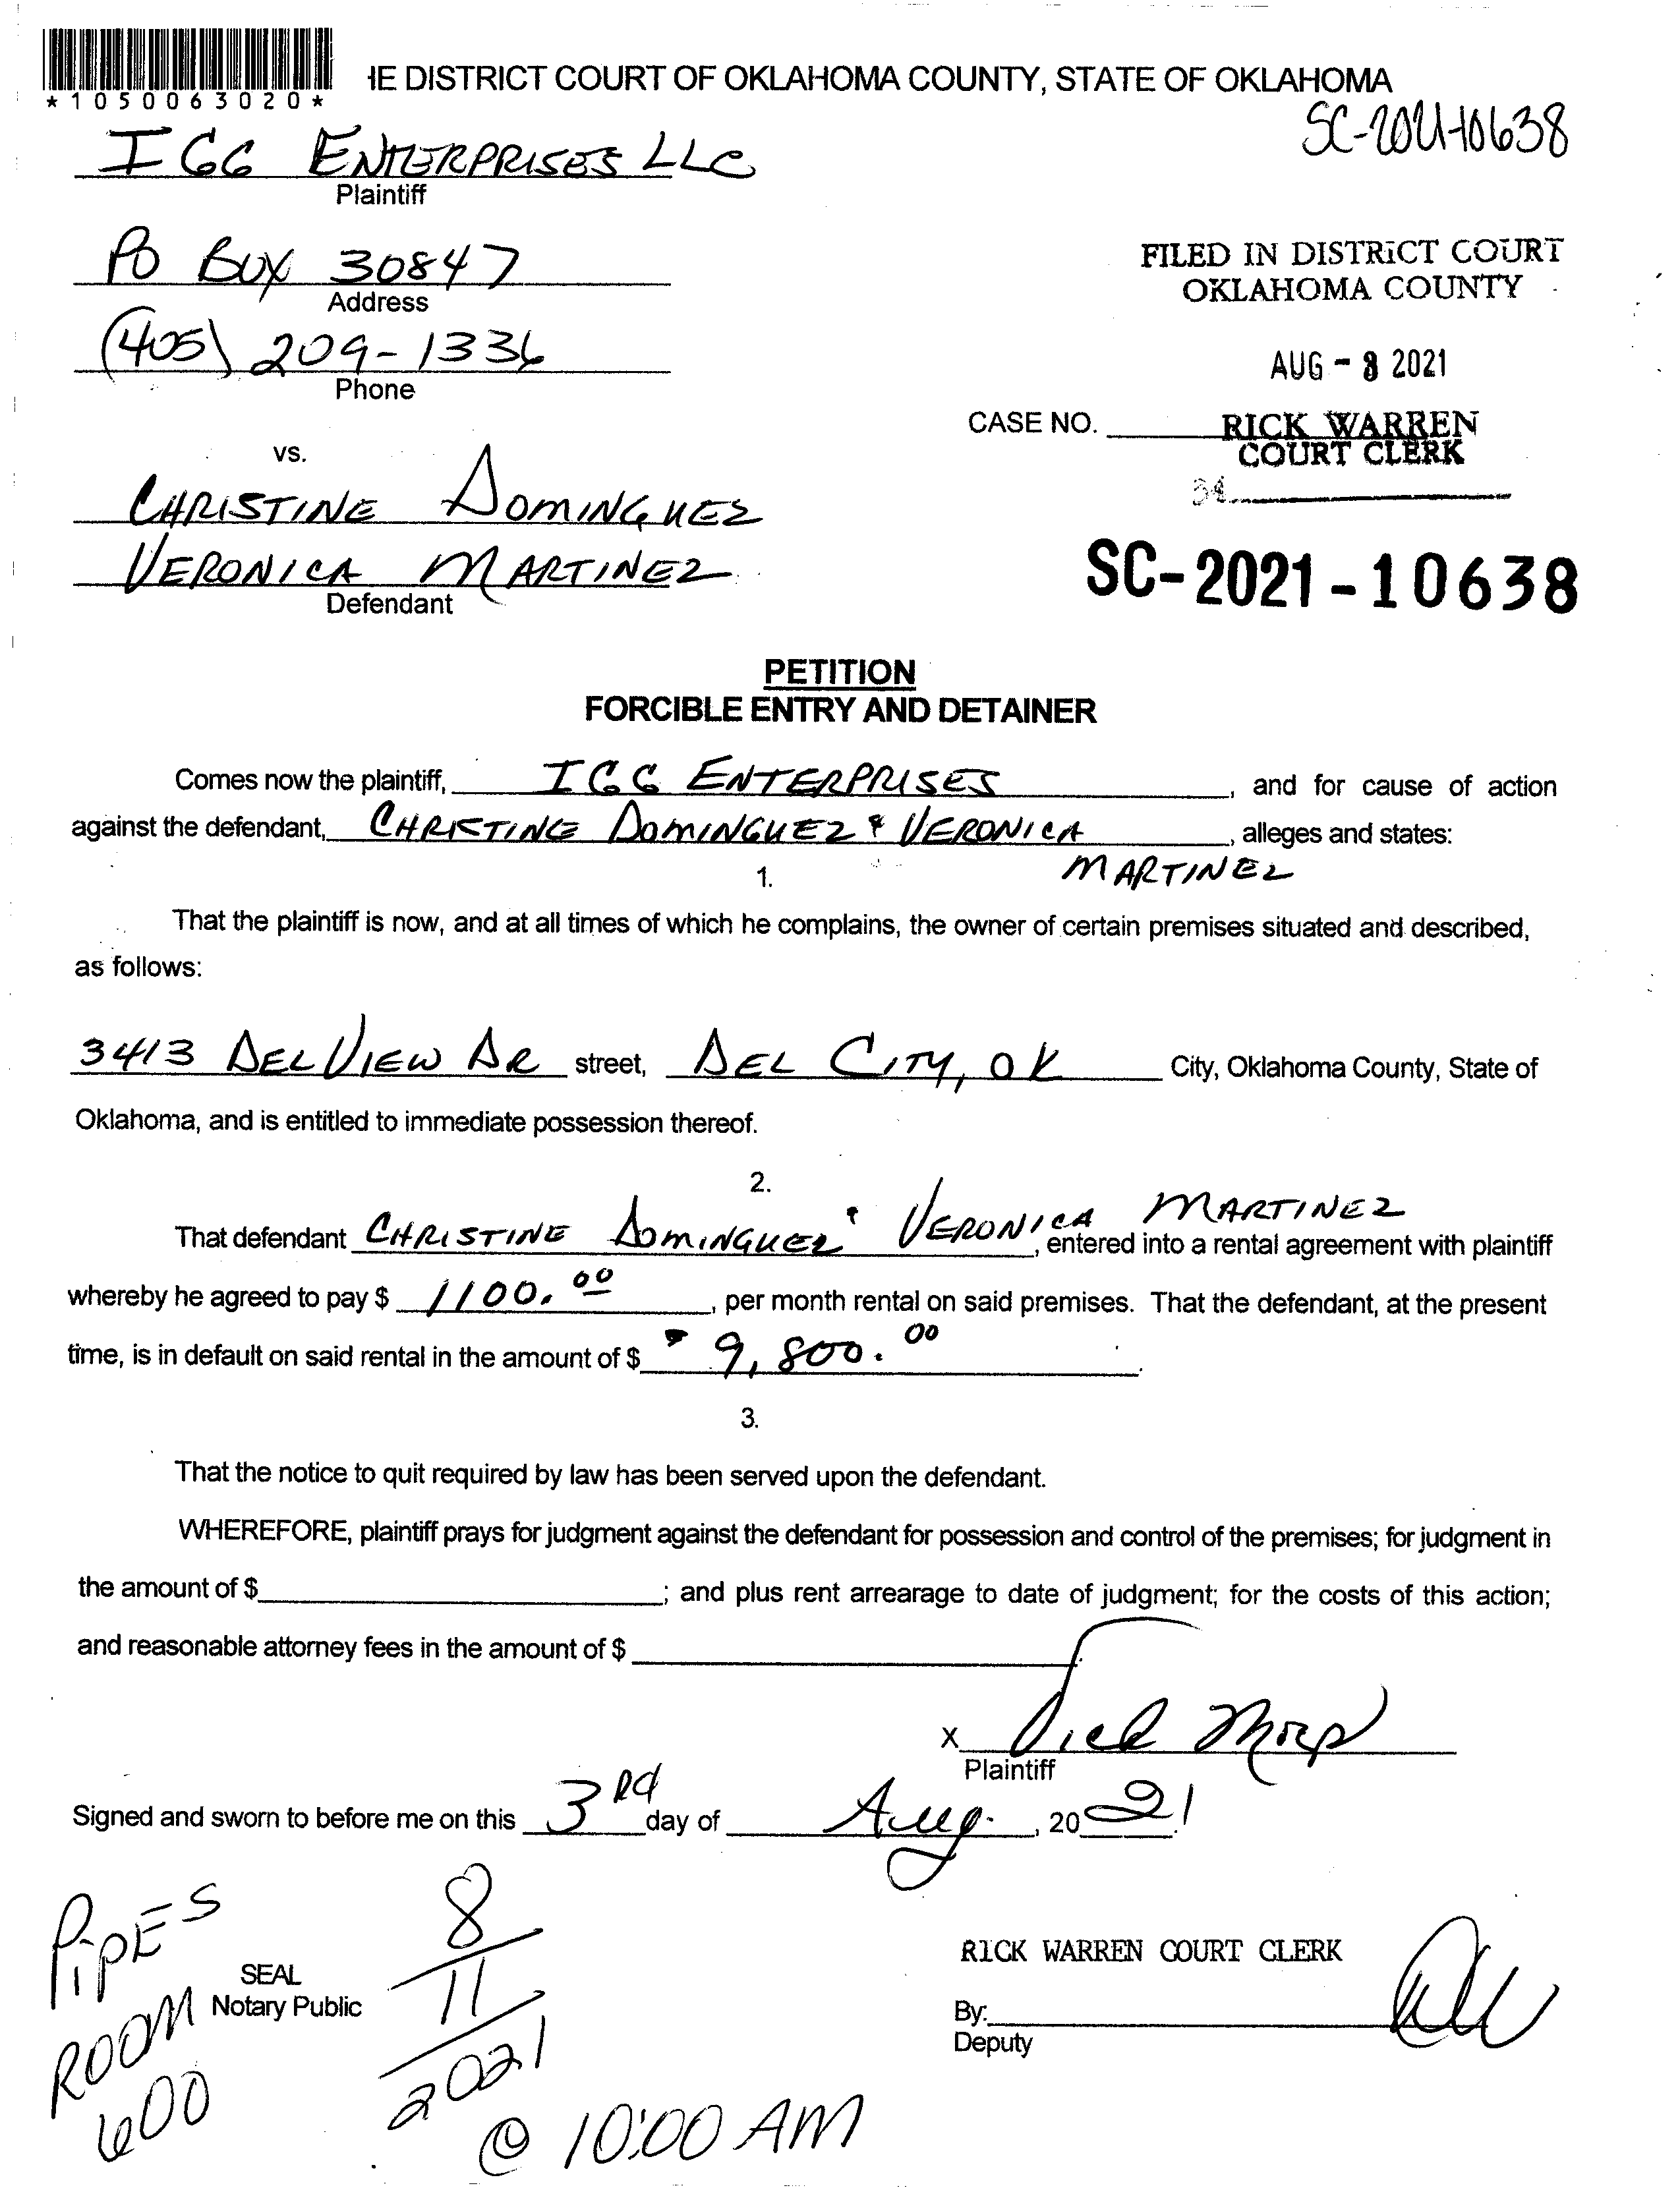 *1050063020*
IE DISTRICT COURT OF OKLAHOMA COUNTY, STATE OF OKLAHOMA
SC-2021-10638
IGG ENTERPRISES LLC
Plaintiff
PO BOX 30847
Address
(405) 209-1336
Phone
FILED IN DISTRICT COURT
OKLAHOMA COUNTY
AUG - 3 2021
CASE NO.
RICK WARREN
COURT CLERK
34
vs.
CHRISTINE DOMINGUEZ
VERONICA MARTINEZ
Defendant
SC-2021-10638
PETITION
FORCIBLE ENTRY AND DETAINER
Comes now the plaintiff, IGG ENTERPRISES, and for cause of action
against the defendant, CHRISTINE DOMINGUEZ & VERONICA, alleges and states:
MARTINEZ
1.
That the plaintiff is now, and at all times of which he complains, the owner of certain premises situated and described,
as follows:
3413 DEL VIEW DR street, DEL CITY, OK City, Oklahoma County, State of
Oklahoma, and is entitled to immediate possession thereof.
2.
That defendant CHRISTINE DOMINGUEZ & VERONICA MARTINEZ, entered into a rental agreement with plaintiff
whereby he agreed to pay $ 1100.00, per month rental on said premises. That the defendant, at the present
time, is in default on said rental in the amount of $ 9,800.00.
3.
That the notice to quit required by law has been served upon the defendant.
WHEREFORE, plaintiff prays for judgment against the defendant for possession and control of the premises; for judgment in
the amount of $; and plus rent arrearage to date of judgment; for the costs of this action;
and reasonable attorney fees in the amount of $.
X
Plaintiff
Signed and sworn to before me on this 3rd day of Aug., 2021.
PIPES
ROOM
600
SEAL
Notary Public
8
11
2021
@ 10:00 AM
RICK WARREN COURT CLERK
By:
Deputy